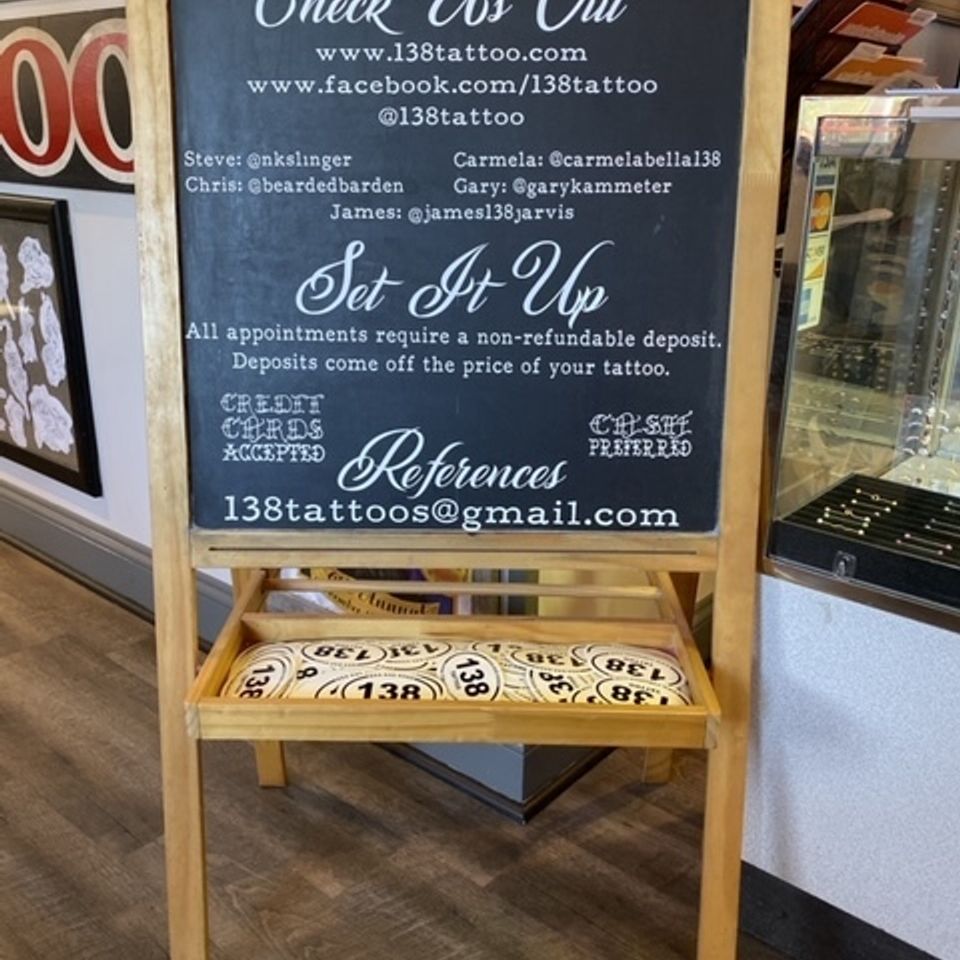 Check Us Out
www.138tattoo.com
www.facebook.com/138tattoo
@138tattoo
Steve: @nkslinger
Carmela: @carmelabella138
Chris: @beardedbarden
Gary: @garykammeter
James: @james138jarvis
Set It Up
All appointments require a non-refundable deposit.
Deposits come off the price of your tattoo.
CREDIT
CARDS
ACCEPTED
CASH
PREFERRED
References
138tattoos@gmail.com
OO
Annual
138
138
138
138
138
138
138